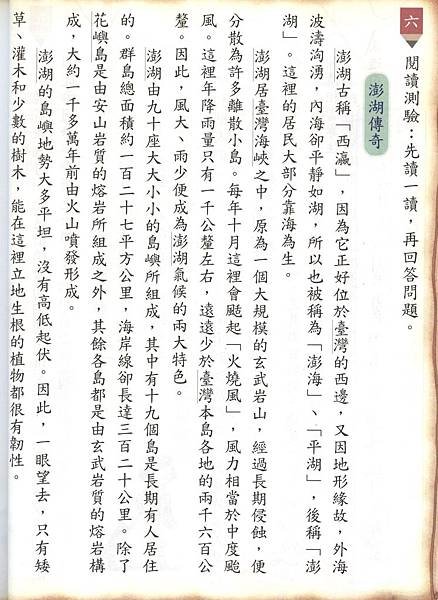 六
閱讀測驗：先讀一讀，再回答問題。
澎湖傳奇
澎湖古稱「西瀛」，因為它正好位於臺灣的西邊，又因地形緣故，外海
波濤洶湧，內海卻平靜如湖，所以也被稱為「澎海」、「平湖」，後稱「澎
湖」。這裡的居民大部分靠海為生。
澎湖居臺灣海峽之中，原為一個大規模的玄武岩山，經過長期侵蝕，便
分散為許多離散小島。每年十月這裡會颳起「火燒風」，風力相當於中度颱
風。這裡年降雨量只有一千公釐左右，遠遠少於臺灣本島各地的兩千六百公
釐。因此，風大、雨少便成為澎湖氣候的兩大特色。
澎湖由九十座大大小小的島嶼所組成，其中有十九個島是長期有人居住
的。群島總面積約一百二十七平方公里，海岸線卻長達三百二十公里。除了
花嶼島是由安山岩質的熔岩所組成之外，其餘各島都是由玄武岩質的熔岩構
成，大約一千多萬年前由火山噴發形成。
澎湖的島嶼地勢大多平坦，沒有高低起伏。因此，一眼望去，只有矮
草、灌木和少數的樹木，能在這裡立地生根的植物都很有韌性。